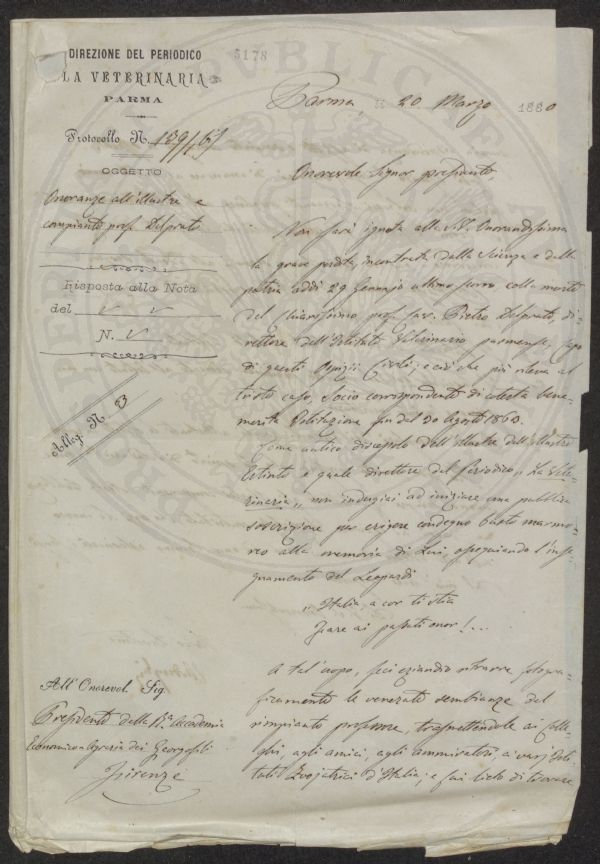 DIREZIONE DEL PERIODICO
LA VETERINARIA
PARMA
Protocollo N. 139/
OGGETTO
Onoranze all'illustre e
compianto prof. Delprato
Risposta alla Nota
del
N.
Alleg. N. 83
5178
Parma, li 20 Marzo 1880
Onorevole Signor presidente,
Non sarà ignota alla S.V. Onorandissima
la grave perdita, incontrata dalla Scienza e dalla
patria addì 29 Gennajo ultimo scorso colla morte
del chiarissimo prof. cav. Pietro Delprato, di-
rettore dell'Istituto Veterinario parmense, capo
di questi Ospizii Civili; e ciò che più rileva al
tristo caso, Socio corrispondente di cotesta bene-
merita Istituzione fin del 20 Agosto 1860.
Come antico discepolo dell'illustre dell'illustre
Estinto e quale direttore del periodico „ La Vete-
rinaria „ non indugiai ad iniziare una pubblica
soscrizione per erigere condegno busto marmo-
reo alla memoria di Lui, ossequiando l'inse-
gnamento del Leopardi
„ Italia, a cor ti stia
Fare ai passati onor!...
A tal uopo, feci eziandio ritrarre fotogra-
ficamente le venerate sembianze del
rimpianto professore, trasmettendole ai Colle-
ghi, agli amici, agli ammiratori, ai varj Isti-
tuti Zoojatrici d'Italia; e fui lieto di trovare
All' Onorevol. Sig.
Presidente della R.a Accademia
Economico-Agraria dei Georgofili
Firenze